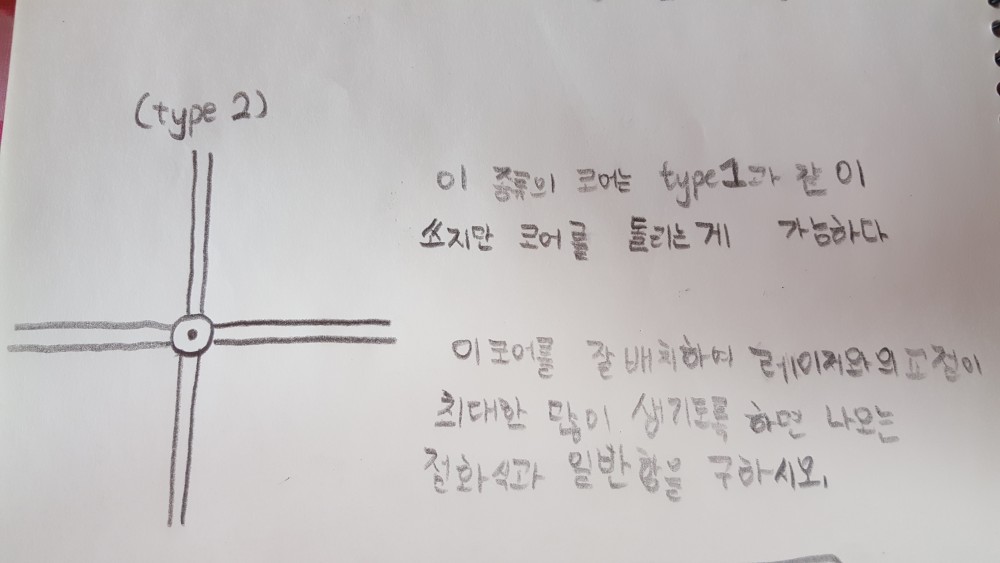 (type 2)
이 종류의 코어는 type1과 같이
쓰지만 코어를 돌리는게 가능하다
이코어를 잘 배치하여 레이저와의교점이
최대한 많이 생기도록 하면 나오는
점화식과 일반항을 구하시오.